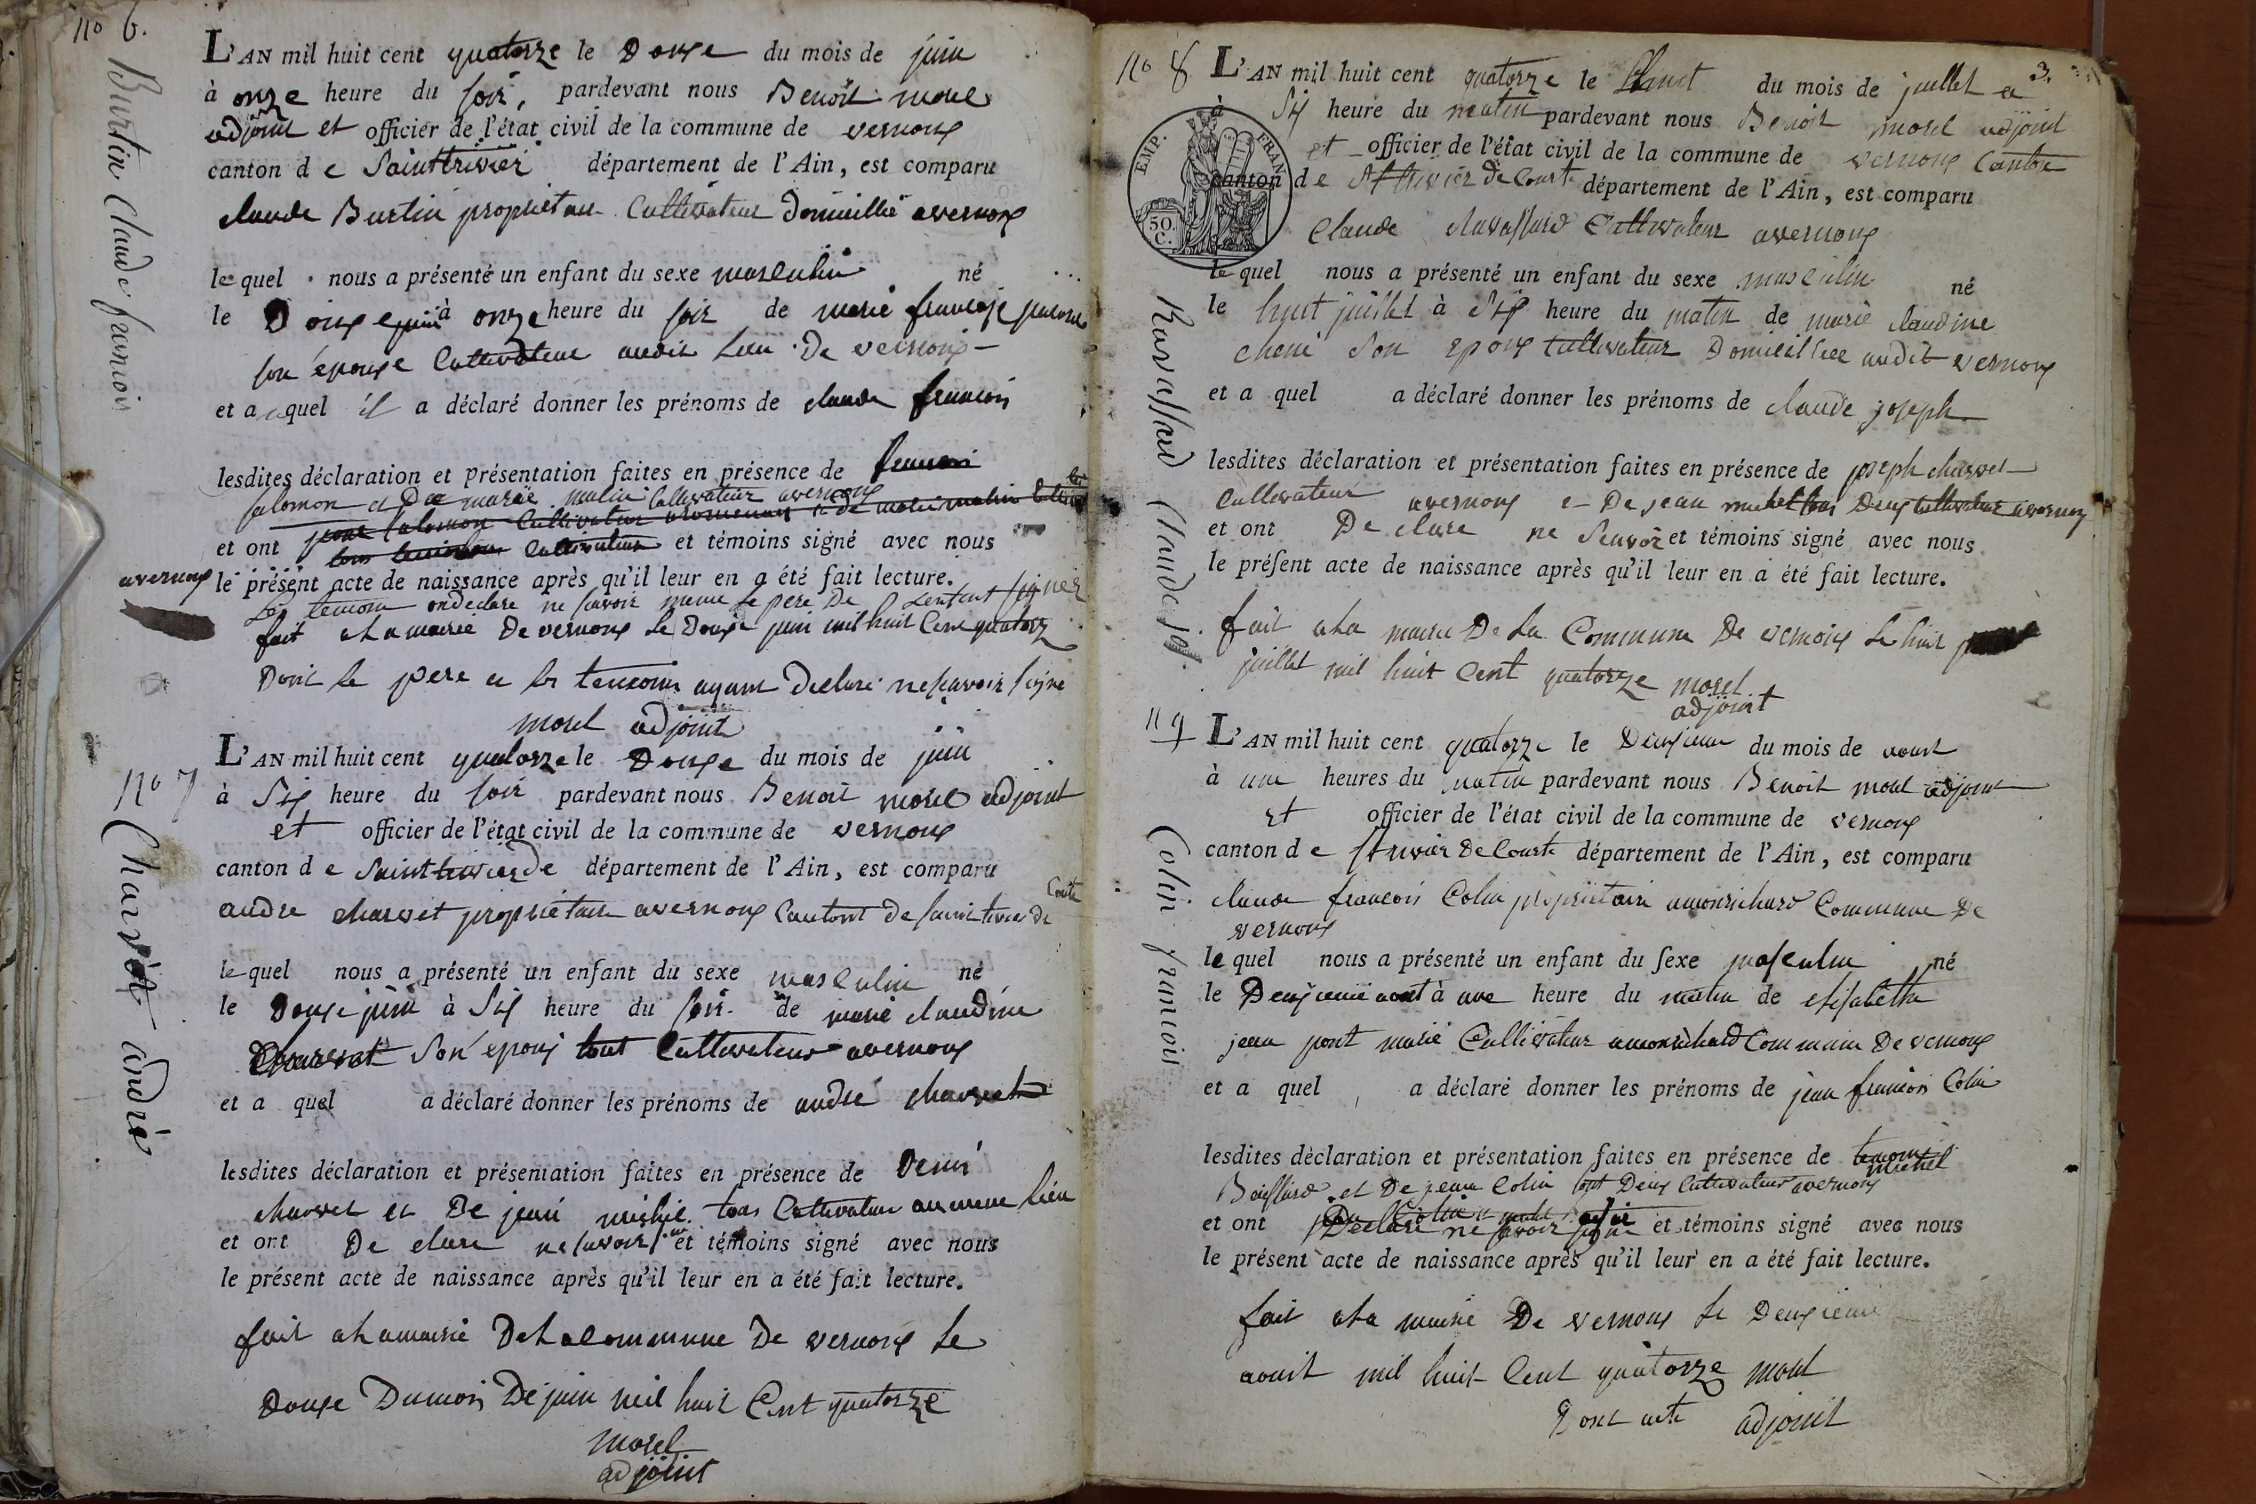 no 6.
Burtin Claude francois
L'AN mil huit cent quatorze le Douze du mois de juin
à onze heure du soir, pardevant nous Benoit morel
adjoint et officier de l'état civil de la commune de vernoux
canton de Sainttrivier département de l'Ain, est comparu
claude Burtin proprietaire Cultivateur Domicillié avernoux
lequel nous a présenté un enfant du sexe masculin né
le Douze juin à onze heure du soir de marie francoise
son épouse Cultivateur audit Lieu De vernoux
et a quel il a déclaré donner les prénoms de claude francois
lesdites déclaration et présentation faites en présence de
salomon et De marie Cultivateur avernoux
et ont Cultivateur et témoins signé avec nous
avernoux le présent acte de naissance après qu'il leur en a été fait lecture.
Les temoin ondeclare ne savoir meme le pere De Lenfant signer
fait alamairie De vernoux Le Douze juin mil huit Cent quatorze
Dont Le pere et les temoins ayant Declaré nesavoir signe
morel adjoint
no 7
Charvet andré
L'AN mil huit cent quatorze le Douze du mois de juin
à Six heure du soir pardevant nous Benoit morel adjoint
et officier de l'état civil de la commune de vernoux
canton de Sainttrivier de département de l'Ain, est comparu
andre charvet proprietaire avernoux Canton De Saint trivier de Courte
lequel nous a présenté un enfant du sexe masculin né
le Douze juin à Six heure du soir de marie claudine
Charvet Son epoux tout Cultivateur avernoux
et a quel a déclaré donner les prénoms de andré charvet
lesdites déclaration et présentation faites en présence de Denis
charvet et De jean michel tous Cultivateur aumeme Lieu
et ont De clare nesavoir et témoins signé avec nous
le présent acte de naissance après qu'il leur en a été fait lecture.
fait alamairie DeLacommune De vernoux Le
Douze Dumois De juin mil huit Cent quatorze
morel
adjoint
3.
no 8
EMP. FRAN
50. C.
Ravassard Claude
L'AN mil huit cent quatorze le huit du mois de juillet
à Six heure du matin pardevant nous Benoit morel adjoint
et officier de l'état civil de la commune de vernoux Canton
canton de St trivier de Courte département de l'Ain, est comparu
Claude Cultivateur avernoux
lequel nous a présenté un enfant du sexe masculin né
le huit juillet à Six heure du matin de marie claudine
Son epoux Cultivateur Domicilliee audit vernoux
et a quel a déclaré donner les prénoms de claude joseph
lesdites déclaration et présentation faites en présence de joseph charvet
Cultivateur avernoux e De jean michel tous Deux Cultivateur avernoux
et ont De clare ne Scavoir et témoins signé avec nous
le présent acte de naissance après qu'il leur en a été fait lecture.
fait ala mairie De La Commune De vernoux Le huit
juillet mil huit Cent quatorze morel
adjoint
n 9
Colin francois
L'AN mil huit cent quatorze le Deuxieme du mois de aout
à une heures du matin pardevant nous Benoit morel adjoint
et officier de l'état civil de la commune de vernoux
canton de St trivier De Courte département de l'Ain, est comparu
claude francois Colin proprietaire amonrichard Commune De
vernoux
lequel nous a présenté un enfant du sexe masculin né
le Deuxieme aout à une heure du matin de elisabeth
jean pont marie Cultivateur amonrichard Commune De vernoux
et a quel a déclaré donner les prénoms de jean francois Colin
lesdites déclaration et présentation faites en présence de temoins
michel
et De jean Colin tout Deux Cultivateur avernoux
et ont Déclare ne savoir signe et témoins signé avec nous
le présent acte de naissance après qu'il leur en a été fait lecture.
fait ala mairie De vernoux Le Deuxieme
aout mil huit Cent quatorze morel
Dont acte adjoint